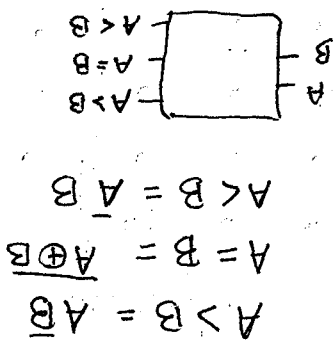 A > B = A B̅
A = B = A̅⊕̅B̅
A < B = A̅ B
A
B
A > B
A = B
A < B